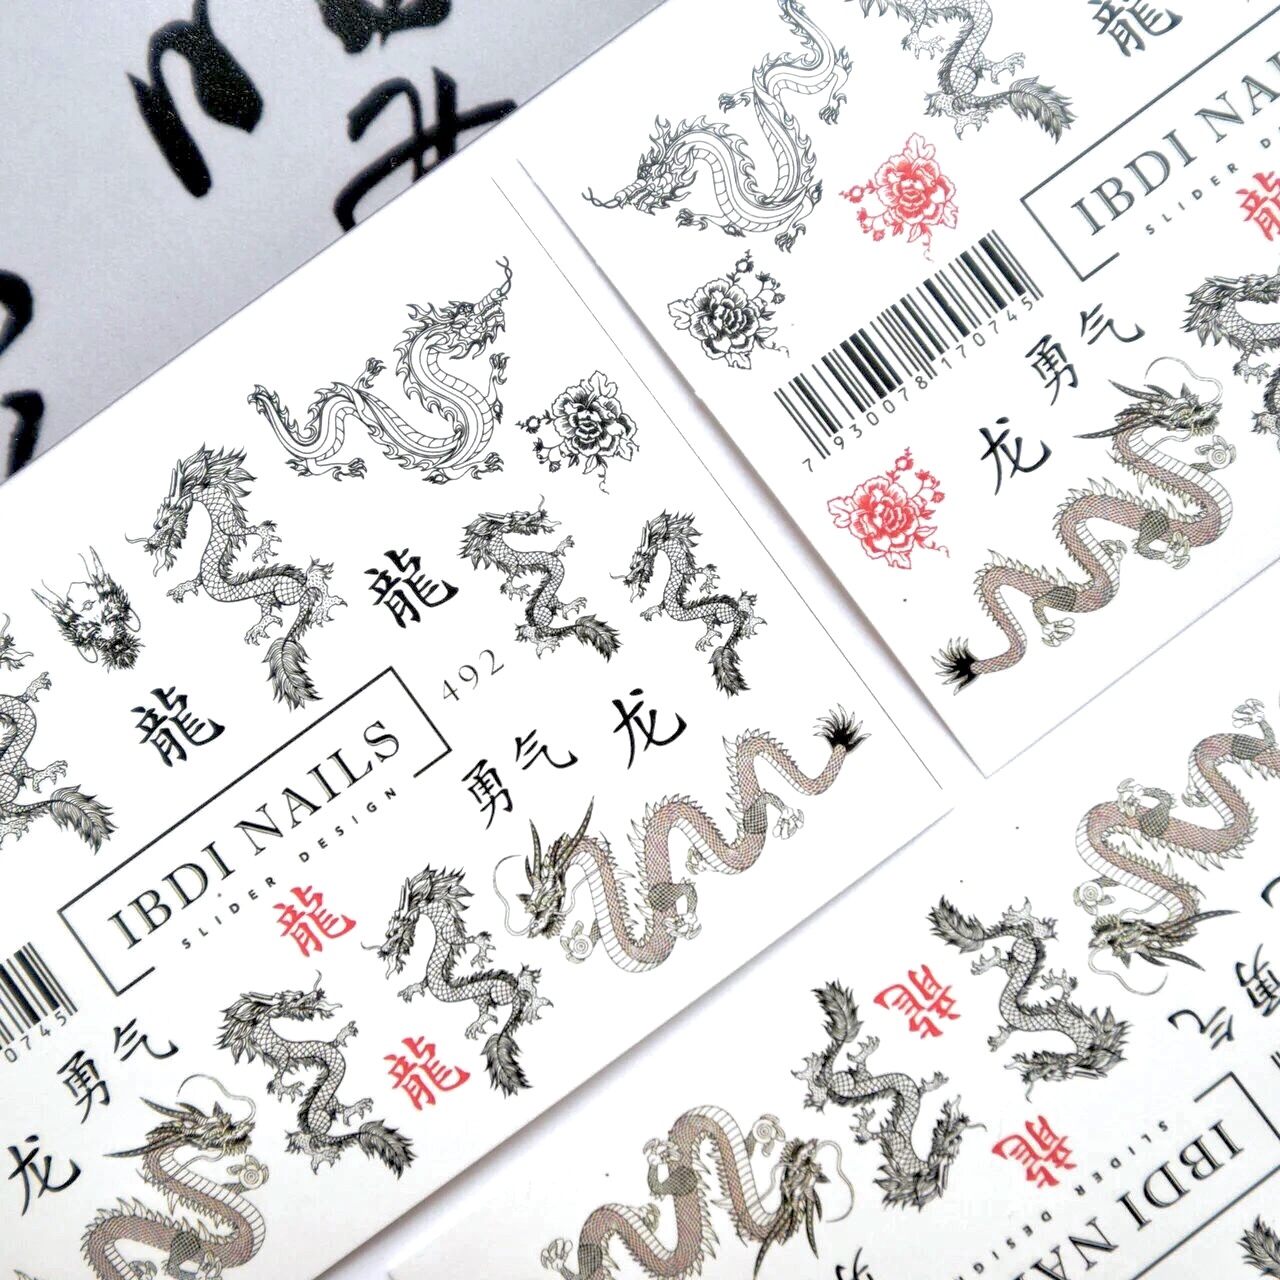 龍
492
龍
龙
勇气
IBDI NAILS
SLIDER DESIGN
龍
龍
0745
勇气
龙
龍
IBDI NAI
SLIDER D
龍
7 930078 170745
勇气
龙
龍
龍
勇气
IBDI NA
SLIDER DES